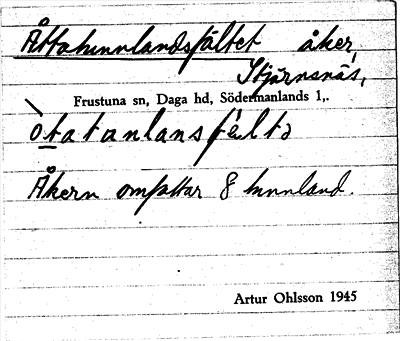 Åttatunnlandsfältet åker,
Stjärnsnäs,
Frustuna sn, Daga hd, Södermanlands l,.
Åkern omfattar 8 tunnland.
Artur Ohlsson 1945